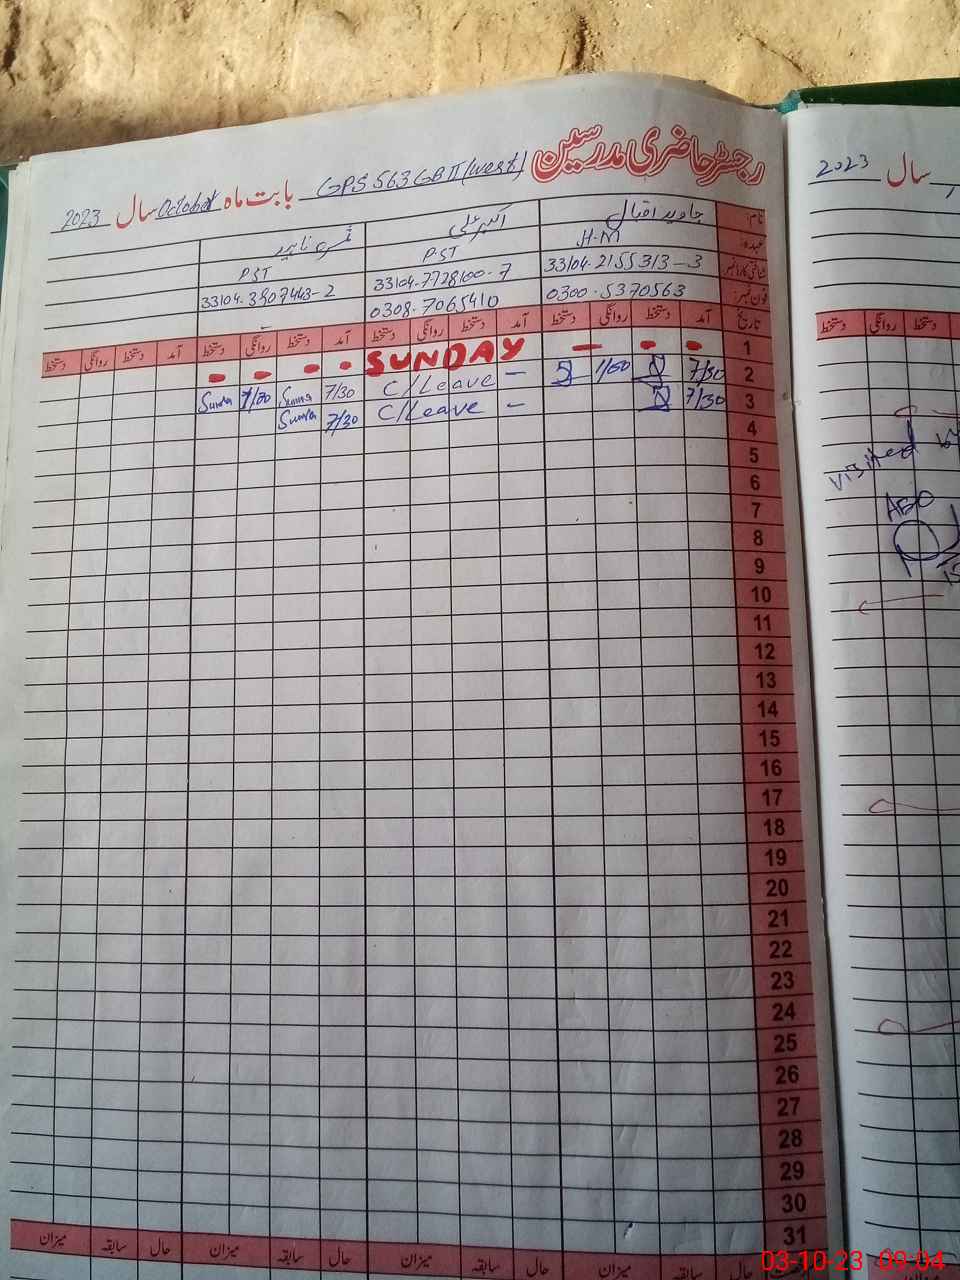 رجسٹر حاضری مدرسین GPS 563 GB II (west) بابت ماہ October سال 2023
نام: جاوید اقبال اکبر علی
عہدہ: H.M PST PST
شناختی کارڈ نمبر 33104-2155313-3 33104-7728100-7 33104-3907463-2
فون نمبر: 0300-5370563 0308-7065410 -
تاریخ آمد دستخط روانگی دستخط آمد دستخط روانگی دستخط آمد دستخط روانگی دستخط آمد دستخط روانگی دستخط
1 - - - SUNDAY - - - -
2 7/30 1/50 - C/Leave 7/30 Sumra 1/50 Sumra
3 7/30 - C/Leave 7/30 Sumra
4
5
6
7
8
9
10
11
12
13
14
15
16
17
18
19
20
21
22
23
24
25
26
27
28
29
30
31
حال سابقہ میزان حال سابقہ میزان حال سابقہ میزان حال سابقہ میزان
سال 2023
دستخط روانگی دستخط
Visited
AEO
03-10-23 09:04